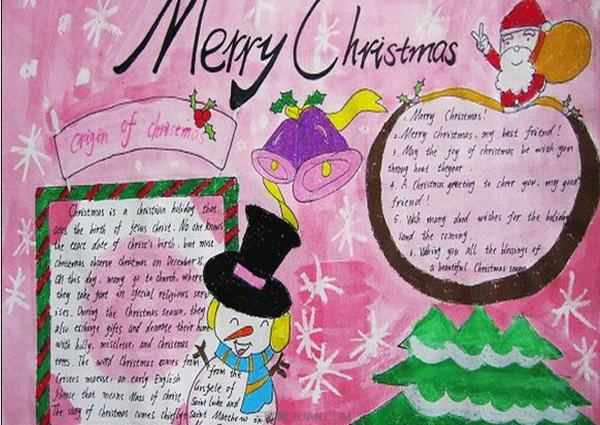 Merry Christmas
Origin of Christmas
Christmas is a christian holiday that
the birth of Jesus christ. No one knows
the exact date of christ's birth, but most
christmas observe christmas on December 25.
On this day, many go to church, where
they take part in special religious serv-
ises. During the Christmas season, they
also exchange gifts and decorate their
with holly, and Christmas
The word Christmas comes from
an early English
Phrase that means Mass of christ.
The story of Christmas comes chiefly
from the
of
Saint Luke and
Saint Matthew in the
1. Merry Christmas!
2. Merry christmas, my best friend!
3. May the joy of christmas be wish you
through hout the year.
4. A Christmas greeting to cheer you, my good
friend!
5. With many good wishes for the holiday
and the coming
6. Wishing you all the blessings of
a beautiful Christmas season